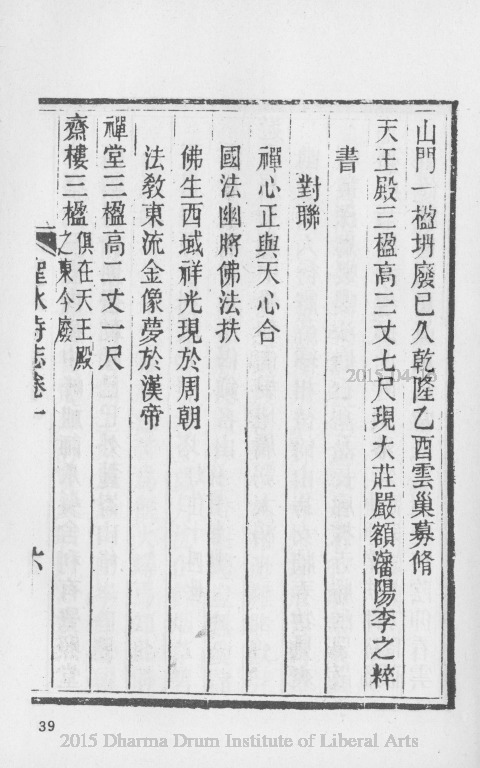 山門一楹坍廢已久乾隆乙酉雲巢募脩
天王殿三楹高三丈七尺現大莊嚴額瀋陽李之粹
書
對聯
禪心正與天心合
國法幽將佛法扶
佛生西域祥光現於周朝
法教東流金像夢於漢帝
禪堂三楹高二丈一尺
齋樓三楹俱在天王殿
之東今廢
寺志卷一
六
39
2015 Dharma Drum Institute of Liberal Arts